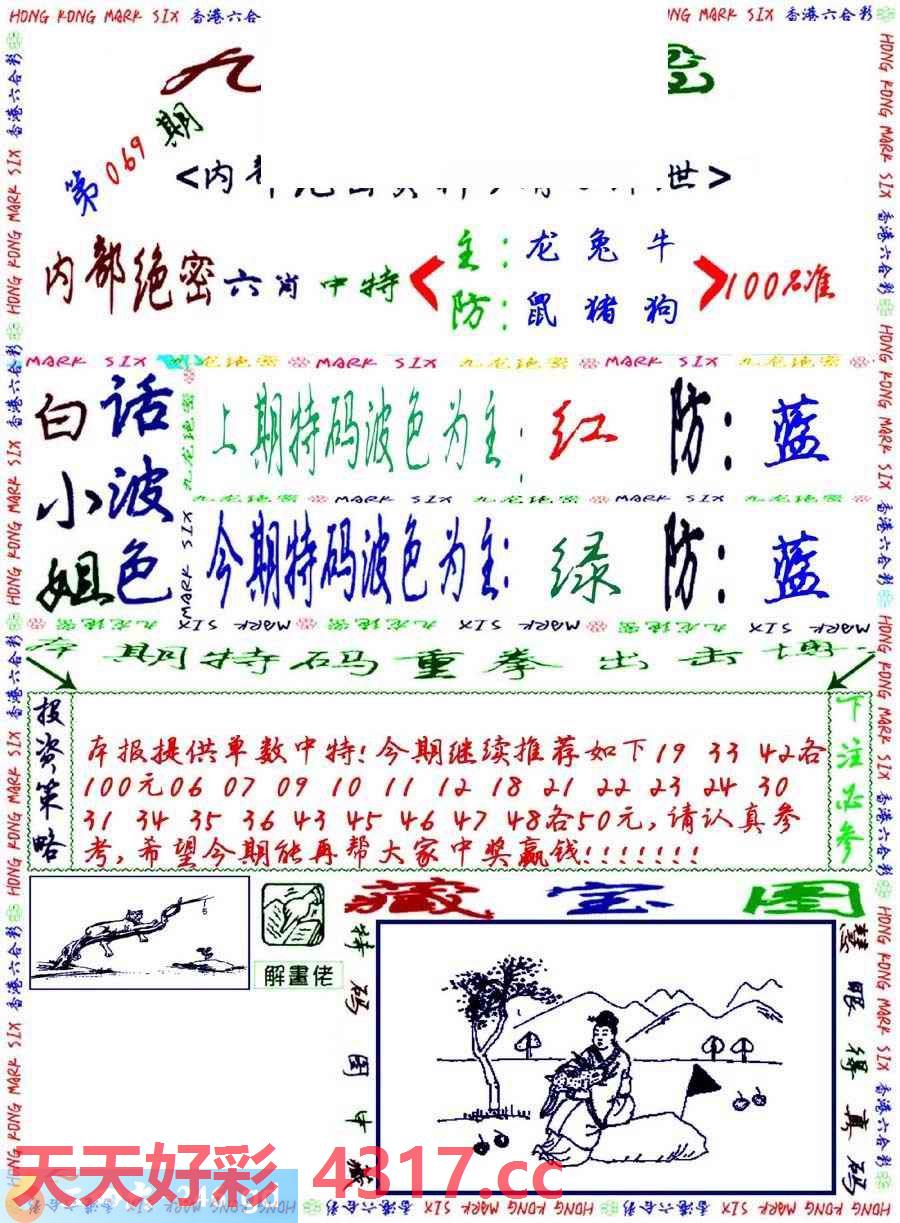 HONG KONG MARK SIX 香港六合彩
第069期
内部绝密六肖中特
主:龙兔牛
防:鼠猪狗
100%准
MARK SIX 九龙绝密 MARK SIX 九龙绝密 MARK SIX 九龙绝密
白话
小波
姐色
上期特码波色为主:红 防:蓝
九龙绝密 MARK SIX 九龙绝密 MARK SIX
今期特码波色为主:绿 防:蓝
本期特码重拳出击
投资策略
本报提供单数中特!今期继续推荐如下19 33 42各
100元06 07 09 10 11 12 18 21 22 23 24 30
31 34 35 36 43 45 46 47 48各50元,请认真参
考,希望今期能再帮大家中奖赢钱!!!!!!!
下注必参
解畫佬
藏宝图
特码图中藏
慧眼得真码
天天好彩 4317.cc